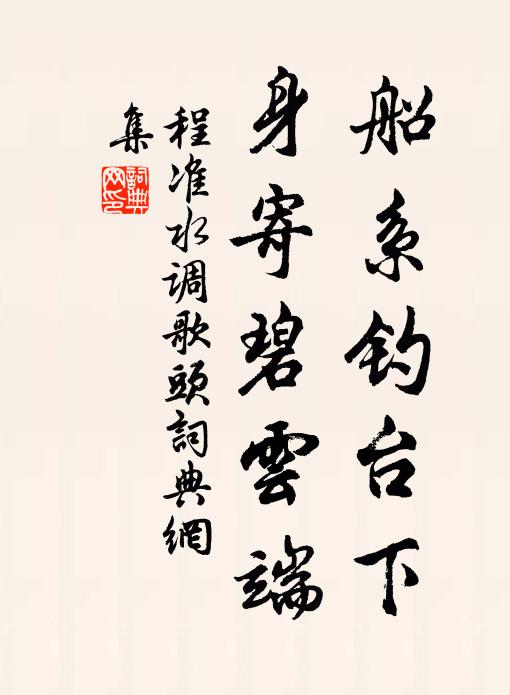 船系钓台下
身寄碧雲端
程准水调歌頭詞典網
集
詞典
网印